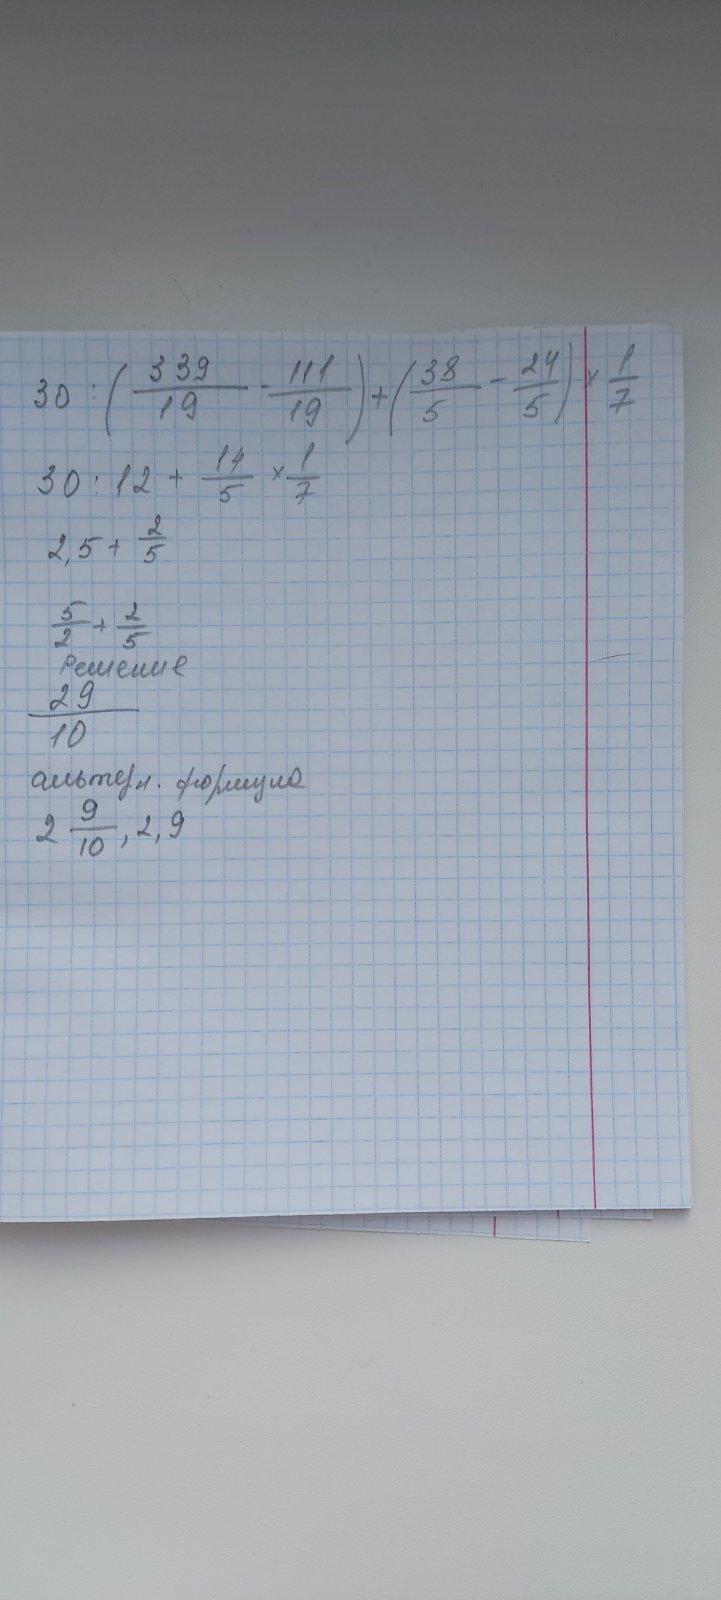 30 : (339/19 - 111/19) + (38/5 - 24/5) × 1/7
30 : 12 + 14/5 × 1/7
2,5 + 2/5
5/2 + 2/5
Решение
29/10
альтерн. формула
2 9/10, 2,9